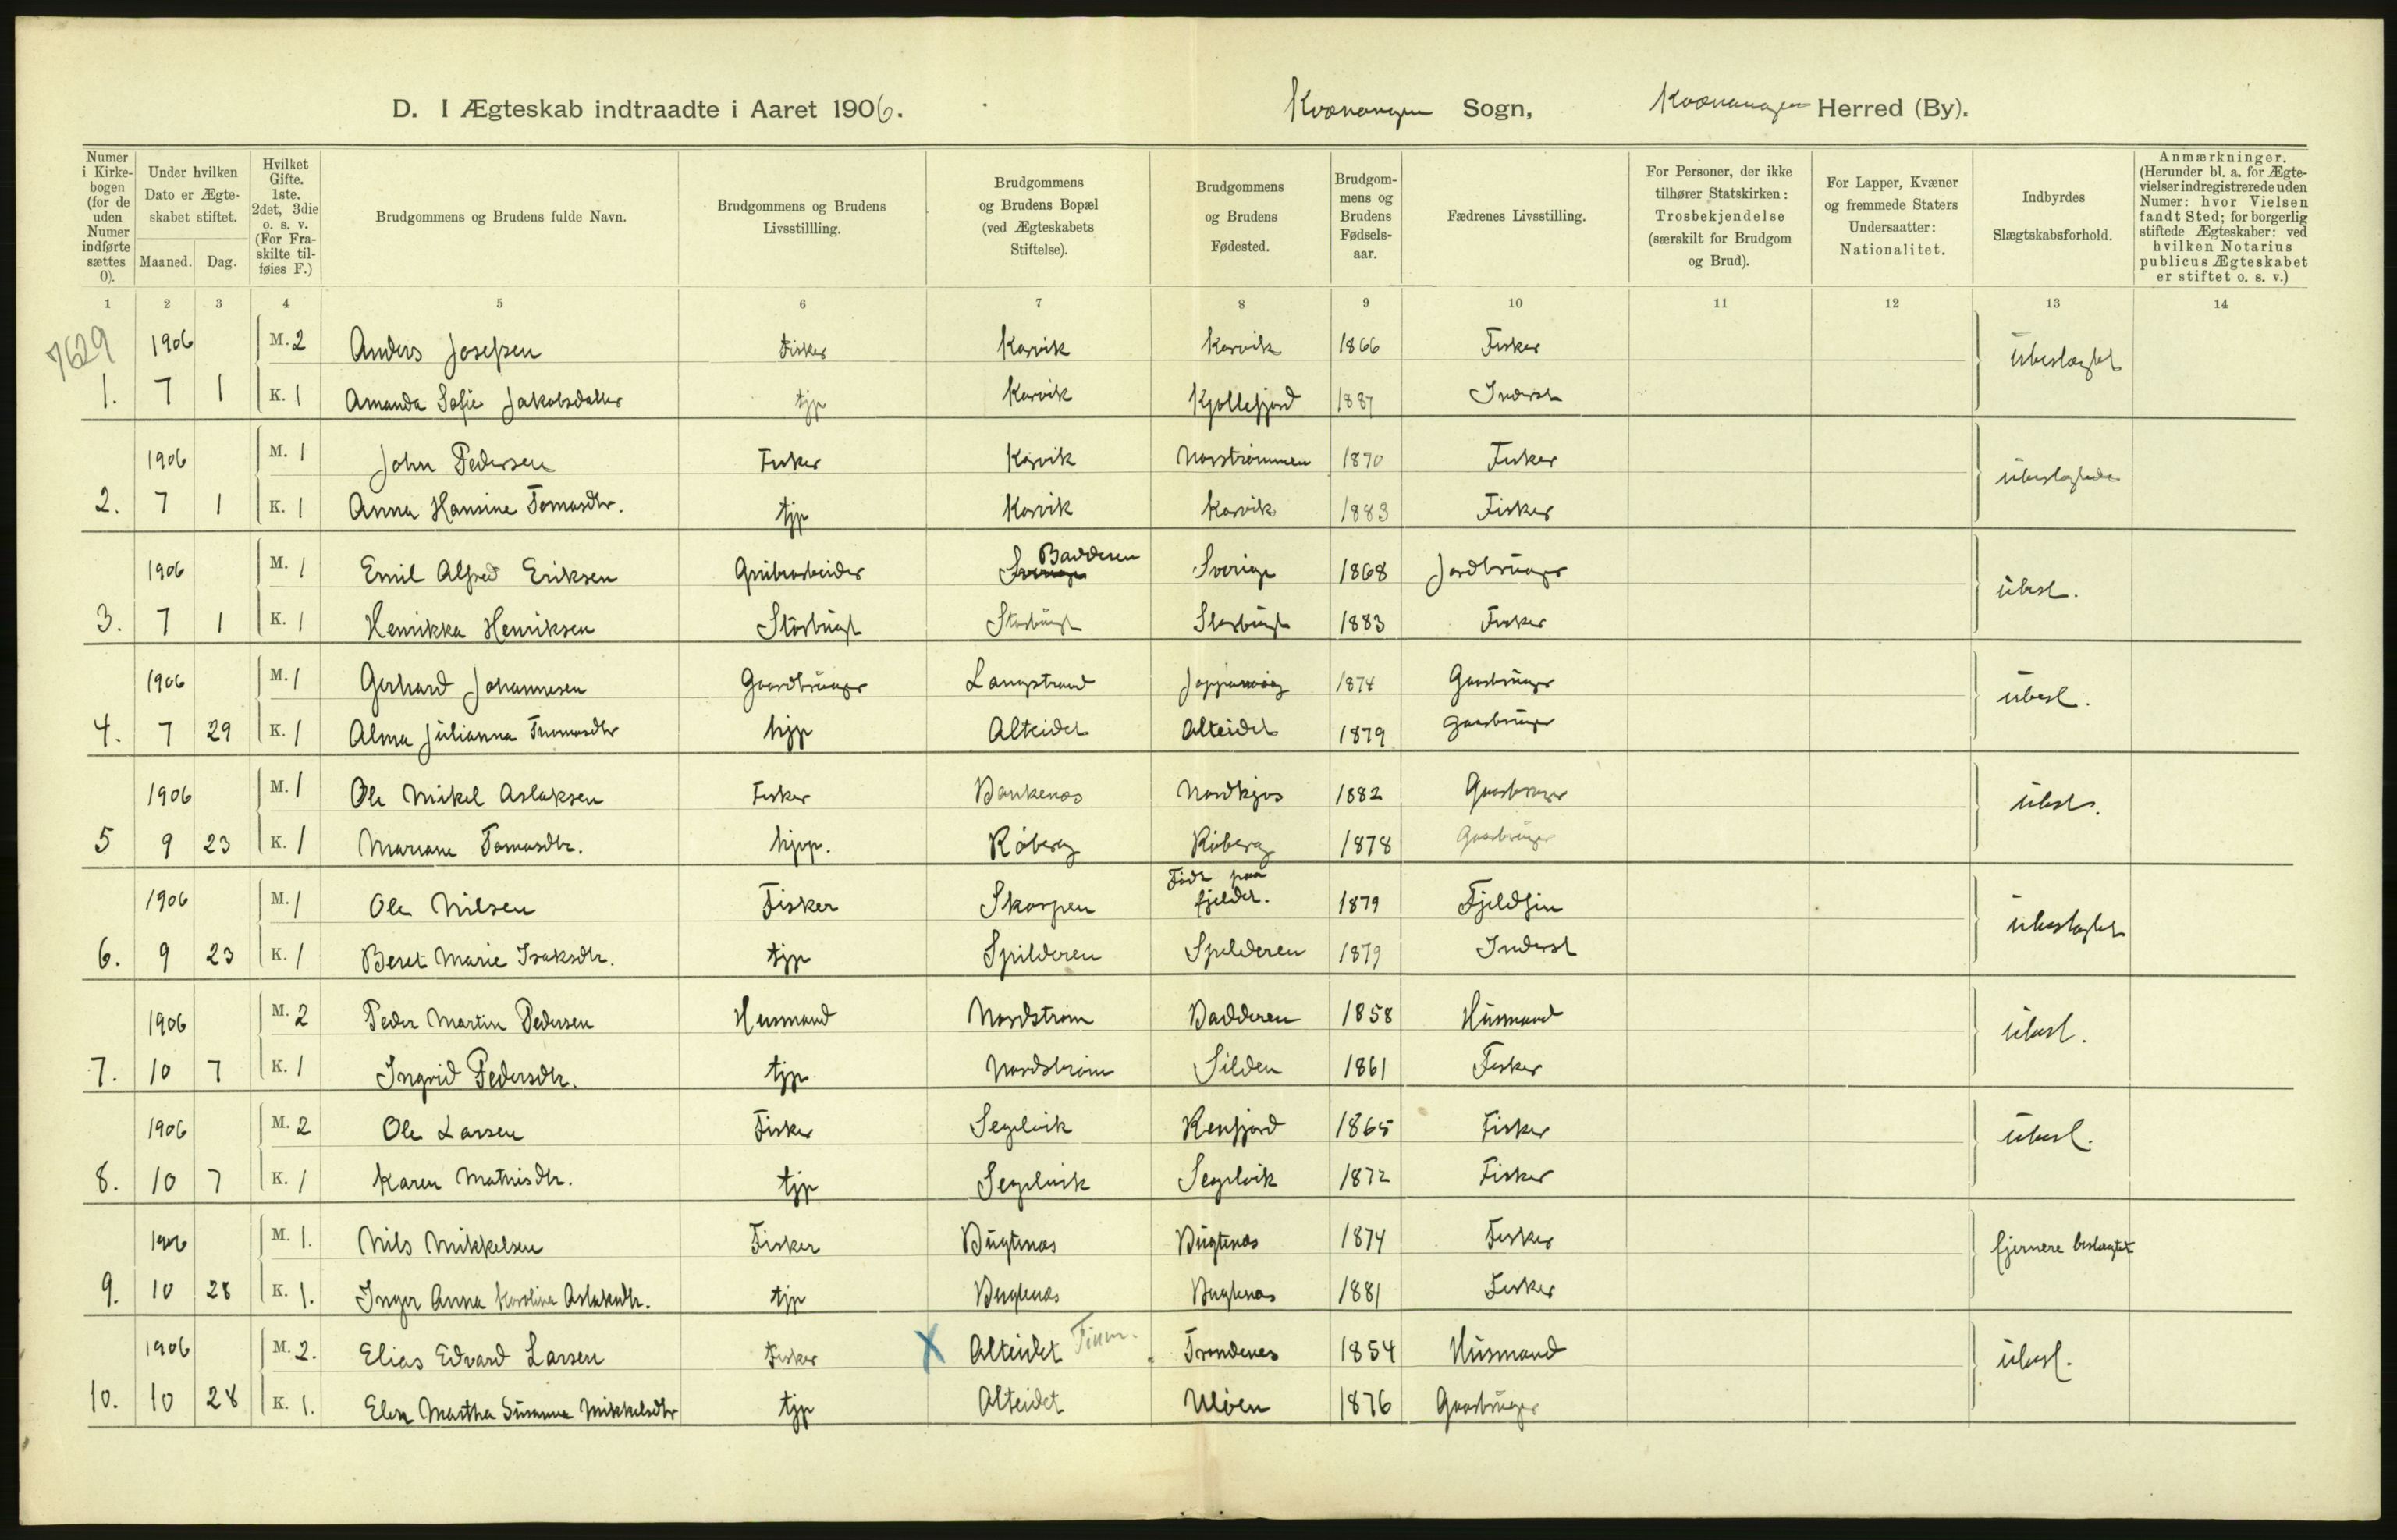 D. I Ægteskab indtraadte i Aaret 1906.
Kvænangen Sogn, Kvænangen Herred (By).
Numer i Kirkebogen (for de uden Numer indførte sættes 0).
Under hvilken Dato er Ægteskabet stiftet.
Maaned. Dag.
Hvilket Gifte. 1ste. 2det, 3die o. s. v. (For Fraskilte tilføies F.)
Brudgommens og Brudens fulde Navn.
Brudgommens og Brudens Livsstillling.
Brudgommens og Brudens Bopæl (ved Ægteskabets Stiftelse).
Brudgommens og Brudens Fødested.
Brudgommens og Brudens Fødselsaar.
Fædrenes Livsstilling.
For Personer, der ikke tilhører Statskirken: Trosbekjendelse (særskilt for Brudgom og Brud).
For Lapper, Kvæner og fremmede Staters Undersaatter: Nationalitet.
Indbyrdes Slægtskabsforhold.
Anmærkninger. (Herunder bl. a. for Ægtevielser indregistrerede uden Numer: hvor Vielsen fandt Sted; for borgerlig stiftede Ægteskaber: ved hvilken Notarius publicus Ægteskabet er stiftet o. s. v.)
1 2 3 4 5 6 7 8 9 10 11 12 13 14
7629
1906 M. 2 Anders Josefsen Fisker Karvik Karvik 1866 Fisker ubeslægtet
1. 7 1 K. 1 Amanda Sofie Jakobsdatter tjp Karvik Kjøllefjord 1887 Inderst
1906 M. 1 John Pedersen Fisker Karvik Norstrømmen 1870 Fisker ubeslægtede
2. 7 1 K. 1 Anna Hansine Tomasdtr. tjp Karvik Karvik 1883 Fisker
1906 M. 1 Emil Alfred Eriksen Grubearbeider Sverige Badderen Sverige 1868 Jordbruger ubesl.
3. 7 1 K. 1 Henrikka Henriksen Storbugt Storbugt Storbugt 1883 Fisker
1906 M. 1 Gerhard Johannesen Gaardbruger Langstrand 1874 Gaardbruger ubesl.
4. 7 29 K. 1 Alma Julianna Thomasdtr hjp Alteidet Alteidet 1879 Gaardbruger
1906 M. 1 Ole Mikel Aslaksen Fisker Bankenæs Nordkjos 1882 Gaardbruger ubesl.
5 9 23 K. 1 Mariane Tomasdtr. hjp. Røberg Røberg 1878 Gaardbruger
1906 M. 1 Ole Nilsen Fisker Skorpen Født paa fjeldet. 1879 Fjeldfin ubeslægtet
6. 9 23 K. 1 Beret Marie Isaksdtr. tjp Spilderen Spilderen 1879 Inderst
1906 M. 2 Peder Martin Pedersen Husmand Nordstrøm Badderen 1858 Husmand ubesl.
7. 10 7 K. 1 Ingrid Pedersdtr. tjp Nordstrøm Silden 1861 Fisker
1906 M. 2 Ole Larsen Fisker Segelvik Renfjord 1865 Fisker ubesl.
8. 10 7 K. 1 Karen Mathisdtr. tjp Segelvik Segelvik 1872 Fisker
1906 M. 1. Nils Mikkelsen Fisker Bugtenæs Bugtenæs 1874 Fisker fjernere beslægtet
9. 10 28 K. 1. Inger Anna Karolina Aslaksdtr. tjp Bugtenæs Bugtenæs 1881 Fisker
1906 M. 2. Elias Edvard Larsen Fisker X Alteidet Finm. Trondenes 1854 Husmand ubesl.
10. 10 28 K. 1. Elen Martha Susanna Mikkelsdtr tjp Alteidet Uløen 1876 Gaardbruger